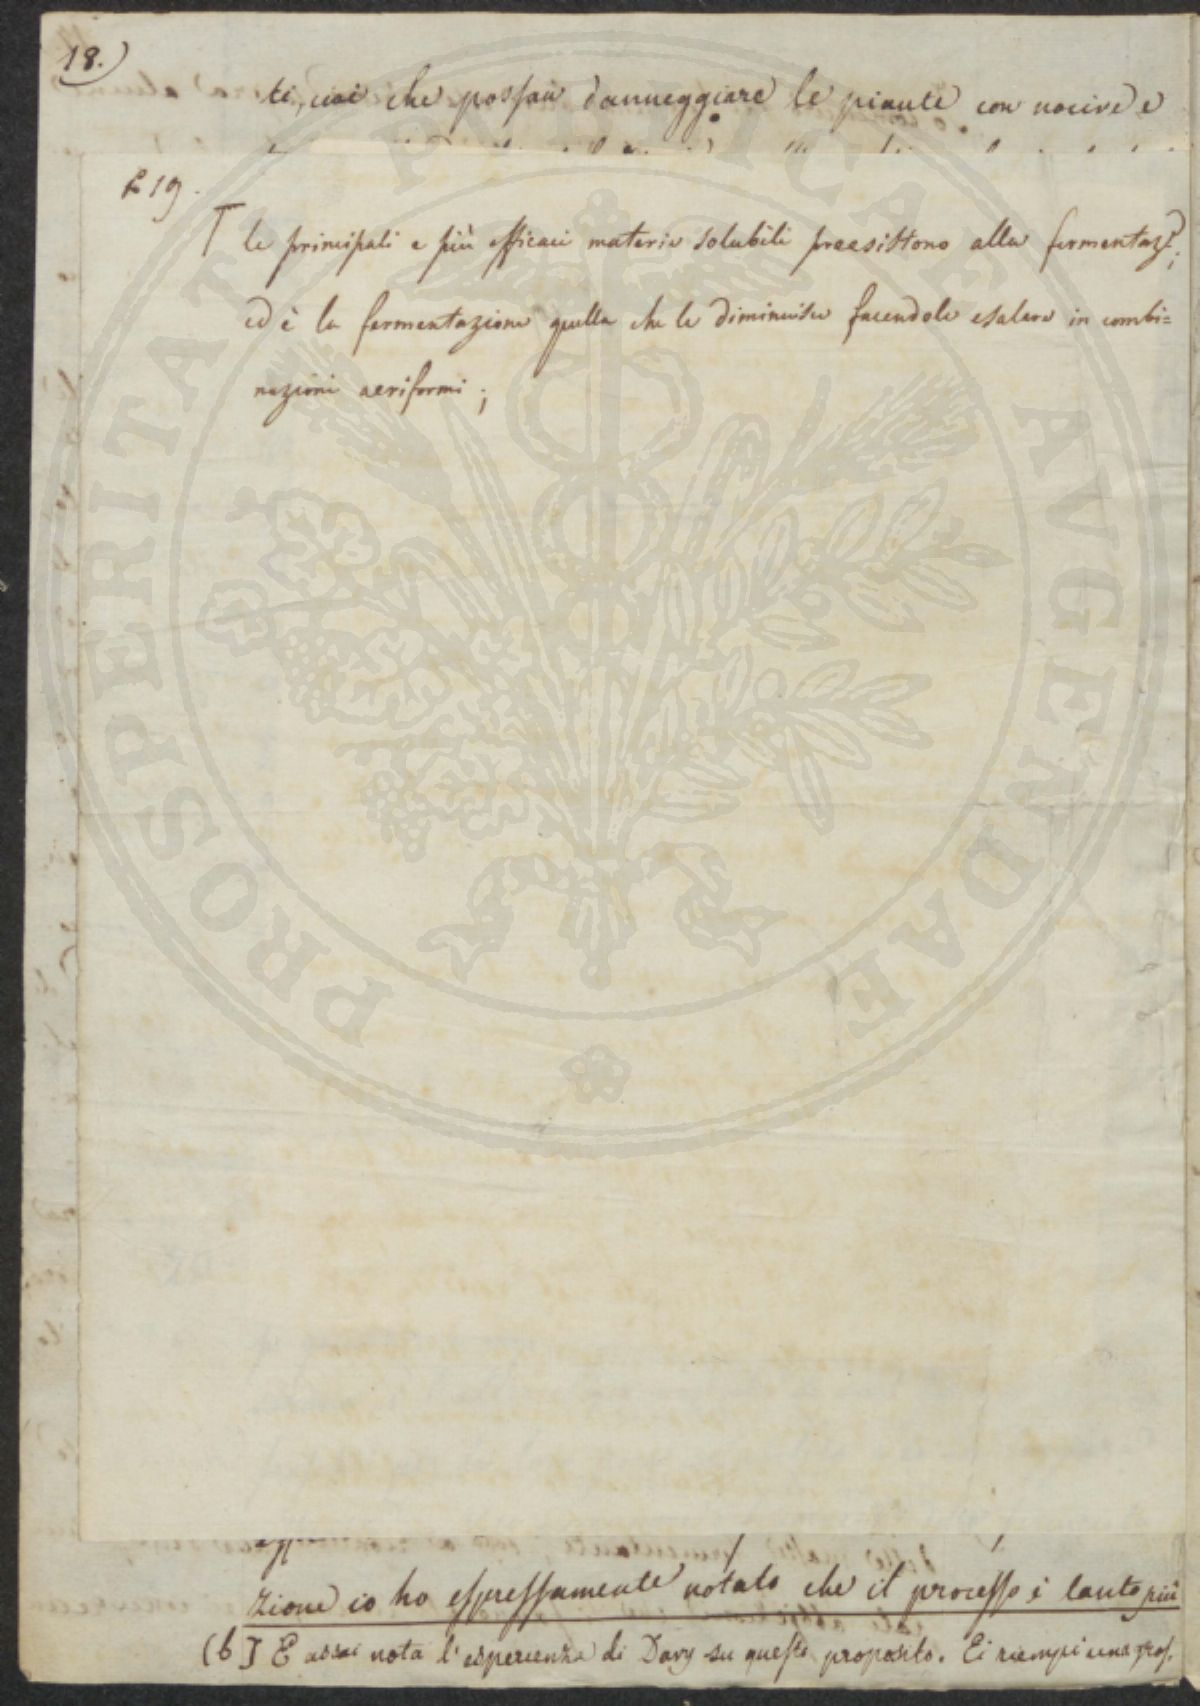 18.)
ti, cioè che possan danneggiare le piante con nocive e
P 19.
T le principali e più efficaci materie solubili preesistono alla fermentaz.e;
ed è la fermentazione quella che le diminuisce facendole esalare in combi=
nazioni aeriformi;
zione io ho espressamente notato che il processo è tanto più
(b] E assai nota l'esperienza di Davy su questo proposito. Ei riempì una gros.
PROSPERITATI PVBLICAE AVGENDAE